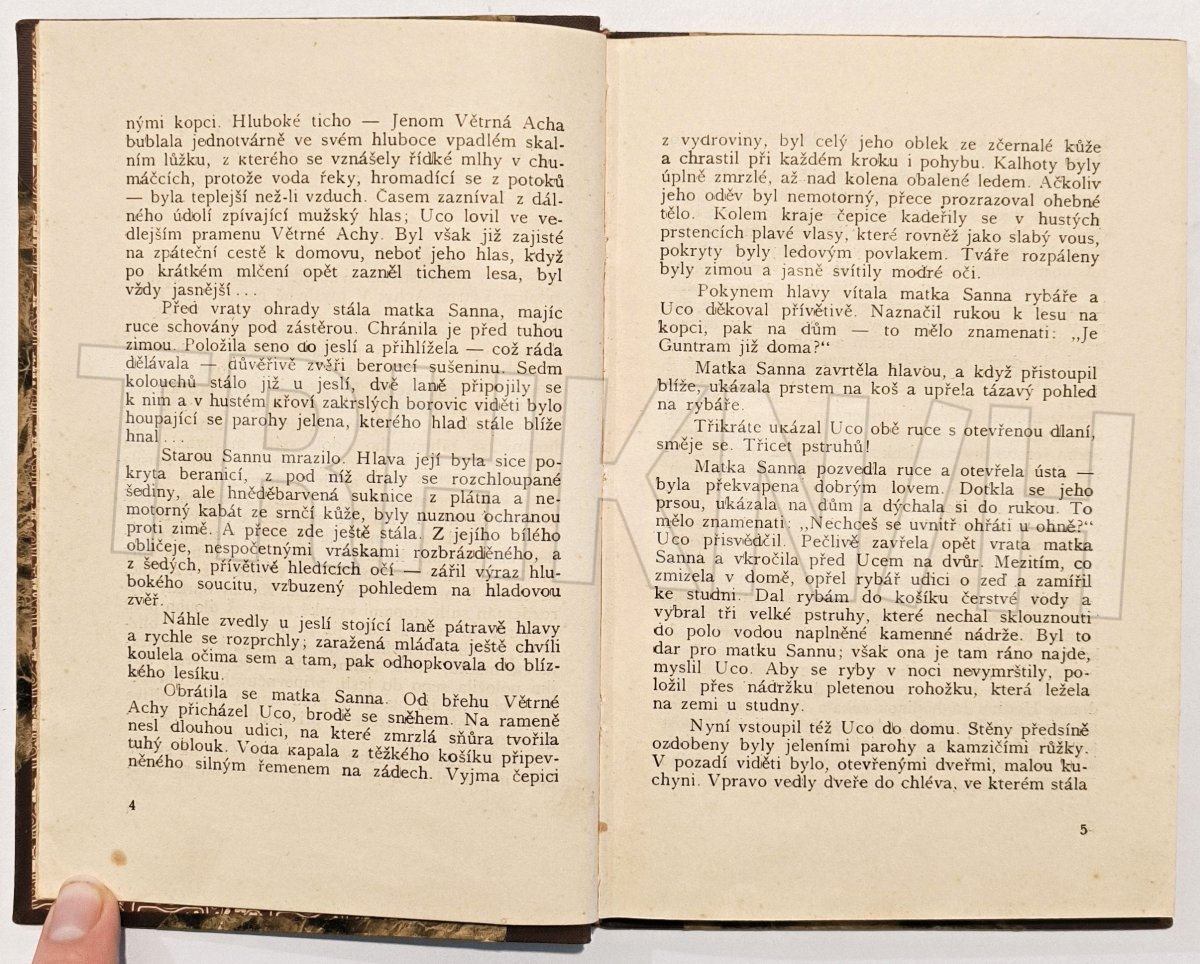 nými kopci. Hluboké ticho — Jenom Větrná Acha
bublala jednotvárně ve svém hluboce vpadlém skal-
ním lůžku, z kterého se vznášely řídké mlhy v chu-
máčcích, protože voda řeky, hromadící se z potoků
— byla teplejší než-li vzduch. Časem zazníval z dál-
ného údolí zpívající mužský hlas; Uco lovil ve ve-
dlejším pramenu Větrné Achy. Byl však již zajisté
na zpáteční cestě k domovu, neboť jeho hlas, když
po krátkém mlčení opět zazněl tichem lesa, byl
vždy jasnější...
Před vraty ohrady stála matka Sanna, majíc
ruce schovány pod zástěrou. Chránila je před tuhou
zimou. Položila seno do jeslí a přihlížela — což ráda
dělávala — důvěřivě zvěři beroucí sušeninu. Sedm
kolouchů stálo již u jeslí, dvě laně připojily se
k nim a v hustém křoví zakrslých borovic viděti bylo
houpající se parohy jelena, kterého hlad stále blíže
hnal...
Starou Sannu mrazilo. Hlava její byla sice po-
kryta beranicí, z pod níž draly se rozchloupané
šediny, ale hněděbarvená suknice z plátna a ne-
motorný kabát ze srnčí kůže, byly nuznou ochranou
proti zimě. A přece zde ještě stála. Z jejího bílého
obličeje, nespočetnými vráskami rozbrázděného, a
z šedých, přívětivě hledících očí — zářil výraz hlu-
bokého soucitu, vzbuzený pohledem na hladovou
zvěř.
Náhle zvedly u jeslí stojící laně pátravě hlavy
a rychle se rozprchly; zaražená mláďata ještě chvíli
koulela očima sem a tam, pak odhopkovala do blíz-
kého lesíku.
Obrátila se matka Sanna. Od břehu Větrné
Achy přicházel Uco, brodě se sněhem. Na rameně
nesl dlouhou udici, na které zmrzlá sňůra tvořila
tuhý oblouk. Voda kapala z těžkého košíku připev-
něného silným řemenem na zádech. Vyjma čepici
4
z vydroviny, byl celý jeho oblek ze zčernalé kůže
a chrastil při každém kroku i pohybu. Kalhoty byly
úplně zmrzlé, až nad kolena obalené ledem. Ačkoliv
jeho oděv byl nemotorný, přece prozrazoval ohebné
tělo. Kolem kraje čepice kadeřily se v hustých
prstencích plavé vlasy, které rovněž jako slabý vous,
pokryty byly ledovým povlakem. Tváře rozpáleny
byly zimou a jasně svítily modré oči.
Pokynem hlavy vítala matka Sanna rybáře a
Uco děkoval přívětivě. Naznačil rukou k lesu na
kopci, pak na dům — to mělo znamenati: „Je
Guntram již doma?“
Matka Sanna zavrtěla hlavou, a když přistoupil
blíže, ukázala prstem na koš a upřela tázavý pohled
na rybáře.
Třikráte ukázal Uco obě ruce s otevřenou dlaní,
směje se. Třicet pstruhů!
Matka Sanna pozvedla ruce a otevřela ústa —
byla překvapena dobrým lovem. Dotkla se jeho
prsou, ukázala na dům a dýchala si do rukou. To
mělo znamenati: „Nechceš se uvnitř ohřáti u ohně?“
Uco přisvědčil. Pečlivě zavřela opět vrata matka
Sanna a vkročila před Ucem na dvůr. Mezitím, co
zmizela v domě, opřel rybář udici o zeď a zamířil
ke studni. Dal rybám do košíku čerstvé vody a
vybral tři velké pstruhy, které nechal sklouznouti
do polo vodou naplněné kamenné nádrže. Byl to
dar pro matku Sannu; však ona je tam ráno najde,
myslil Uco. Aby se ryby v noci nevymrštily, po-
ložil přes nádržku pletenou rohožku, která ležela
na zemi u studny.
Nyní vstoupil též Uco do domu. Stěny předsíně
ozdobeny byly jeleními parohy a kamzičími růžky.
V pozadí viděti bylo, otevřenými dveřmi, malou ku-
chyni. Vpravo vedly dveře do chléva, ve kterém stála
5
TRHKNIH